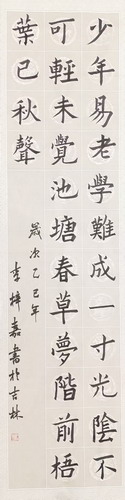 少年易老學難成一寸光陰不
可輕未覺池塘春草夢階前梧
葉已秋聲
歲次乙巳年
李梓嘉書於吉林